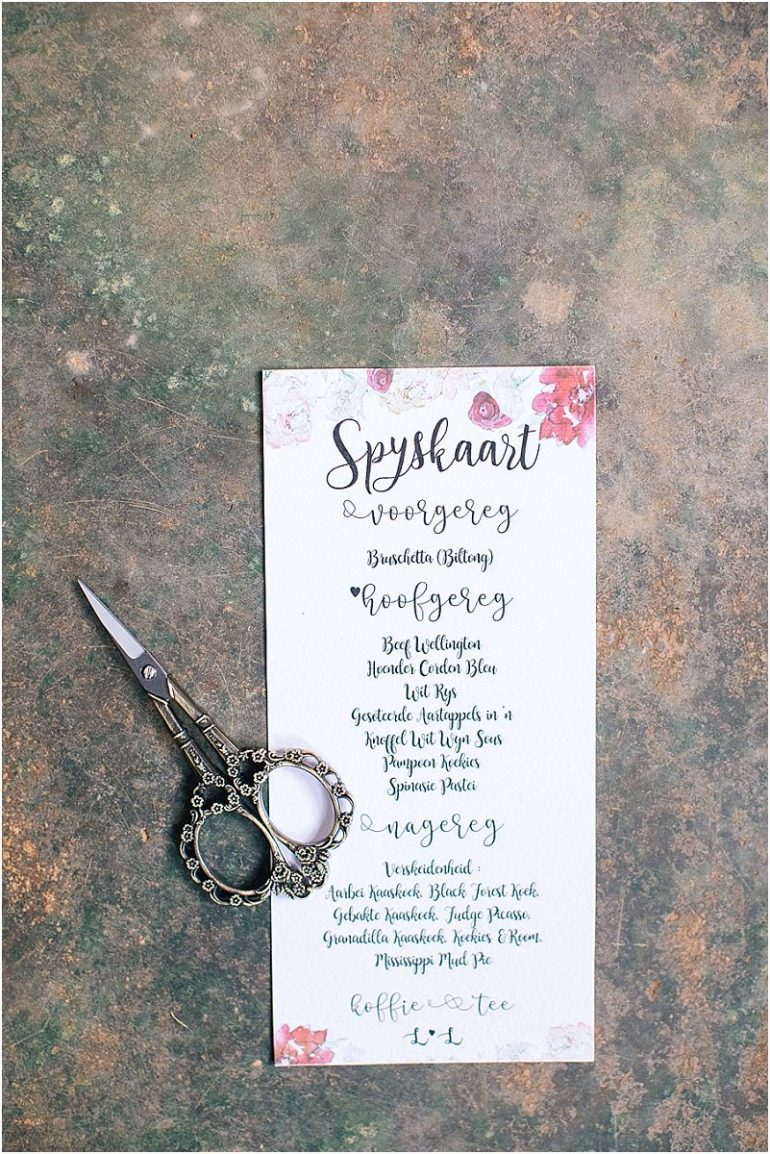 Spyskaart
voorgereg
Bruschetta (Biltong)
hoofgereg
Beef Wellington
Hoender Corden Bleu
Wit Rys
Gesoteerde Aartappels in 'n
Knoffel Wit Wyn Sous
Pampoen Koekies
Spinasie Pastei
nagereg
Verskeidenheid :
Aarbei Kaaskoek, Black Forest Koek,
Gebakte Kaaskoek, Fudge Picasso,
Granadilla Kaaskoek, Koekies & Room,
Mississippi Mud Pie
koffie & tee
L ♥ L